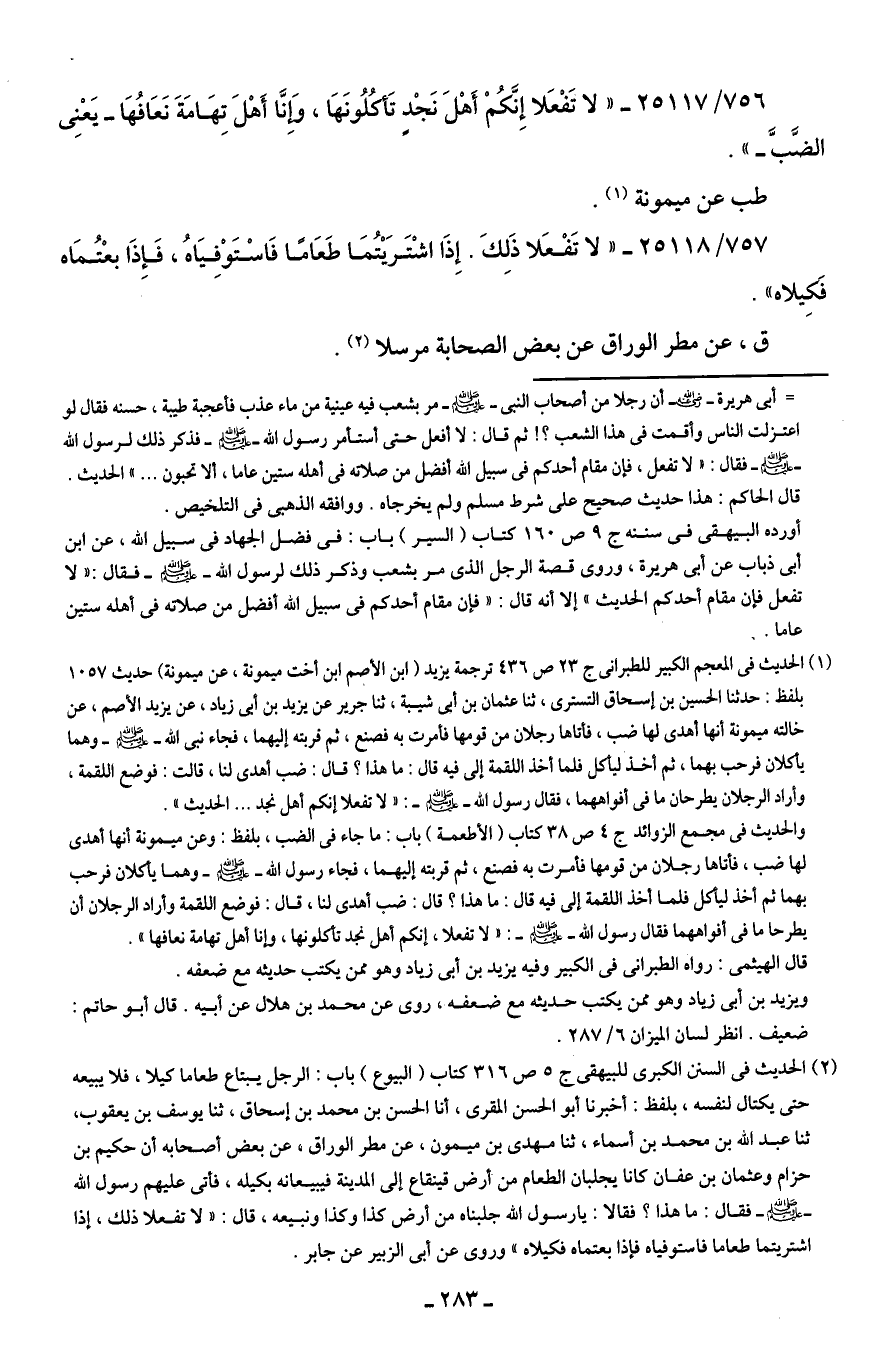 ٢٥١١٧/٧٥٦ ـ « لا تَفْعَلا إِنَّكُمْ أَهْلَ نَجْدٍ تَأكُلُونَهَا ، وَإِنَّا أَهْلَ تِهَامَةَ نَعَافُهَا ـ يَعْنِى
الضَّبَّ ـ » .
طب عن ميمونة (١) .
٢٥١١٨/٧٥٧ ـ « لا تَفْعَلا ذَلِكَ . إِذَا اشْتَرَيْتُمَا طَعَامًا فَاسْتَوْفِيَاهُ ، فَإِذَا بعْتُمَاه
فَكِيلاه» .
ق ، عن مطر الوراق عن بعض الصحابة مرسلا (٢) .
= أبى هريرة ـ رضي الله عنه ـ أن رجلا من أصحاب النبى ـ ﷺ ـ مر بشعب فيه عينية من ماء عذب فأعجبة طيبة ، حسنه فقال لو
اعتزلت الناس وأقمت فى هذا الشعب ؟! ثم قال : لا أفعل حتى أستأمر رسول الله ـ ﷺ ـ فذكر ذلك لرسول الله
ـ ﷺ ـ فقال : « لا تفعل ، فإن مقام أحدكم فى سبيل الله أفضل من صلاته فى أهله ستين عاما ، ألا تحبون ... » الحديث .
قال الحاكم : هذا حديث صحيح على شرط مسلم ولم يخرجاه . ووافقه الذهبى فى التلخيص .
أورده البيهقى فى سننه ج ٩ ص ١٦٠ كتاب ( السير ) باب : فى فضل الجهاد فى سبيل الله ، عن ابن
أبى ذباب عن أبى هريرة ، وروى قصة الرجل الذى مر بشعب وذكر ذلك لرسول الله ـ ﷺ ـ فقال :« لا
تفعل فإن مقام أحدكم الحديث » إلا أنه قال : « فإن مقام أحدكم فى سبيل الله أفضل من صلاته فى أهله ستين
عاما . .
(١) الحديث فى المعجم الكبير للطبرانى ج ٢٣ ص ٤٣٦ ترجمة يزيد ( ابن الأصم ابن أخت ميمونة ، عن ميمونة) حديث ١٠٥٧
بلفظ : حدثنا الحسين بن إسحاق التسترى ، ثنا عثمان بن أبى شيبة ، ثنا جرير عن يزيد بن أبى زياد ، عن يزيد الأصم ، عن
خالته ميمونة أنها أهدى لها ضب ، فأتاها رجلان من قومها فأمرت به فصنع ، ثم قربته إليهما ، فجاء نبى الله ـ ﷺ ـ وهما
يأكلان فرحب بهما ، ثم أخذ ليأكل فلما أخذ اللقمة إلى فيه قال : ما هذا ؟ قال : ضب أهدى لنا ، قالت : فوضع اللقمة ،
وأراد الرجلان يطرحان ما فى أفواههما ، فقال رسول الله ـ ﷺ ـ : « لا تفعلا إنكم أهل نجد ... الحديث » .
والحديث فى مجمع الزوائد ج ٤ ص ٣٨ كتاب ( الأطعمة ) باب : ما جاء فى الضب ، بلفظ : وعن ميمونة أنها أهدى
لها ضب ، فأتاها رجلان من قومها فأمرت به فصنع ، ثم قربته إليهما ، فجاء رسول الله ـ ﷺ ـ وهما يأكلان فرحب
بهما ثم أخذ ليأكل فلما أخذ اللقمة إلى فيه قال : ما هذا ؟ قال : ضب أهدى لنا ، قال : فوضع اللقمة وأراد الرجلان أن
يطرحا ما فى أفواههما فقال رسول الله ـ ﷺ ـ : « لا تفعلا ، إنكم أهل نجد تأكلونها ، وإنا أهل تهامة نعافها » .
قال الهيثمى : رواه الطبرانى فى الكبير وفيه يزيد بن أبى زياد وهو ممن يكتب حديثه مع ضعفه .
ويزيد بن أبى زياد وهو ممن يكتب حديثه مع ضعفه ، روى عن محمد بن هلال عن أبيه . قال أبو حاتم :
ضعيف . انظر لسان الميزان ٦/ ٢٨٧ .
(٢) الحديث فى السنن الكبرى للبيهقى ج ٥ ص ٣١٦ كتاب ( البيوع ) باب : الرجل يبتاع طعاما كيلا ، فلا يبيعه
حتى يكتال لنفسه ، بلفظ : أخبرنا أبو الحسن المقرى ، أنا الحسن بن محمد بن إسحاق ، ثنا يوسف بن يعقوب،
ثنا عبد الله بن محمد بن أسماء ، ثنا مهدى بن ميمون ، عن مطر الوراق ، عن بعض أصحابه أن حكيم بن
حزام وعثمان بن عفان كانا يجلبان الطعام من أرض قينقاع إلى المدينة فيبيعانه بكيله ، فأتى عليهم رسول الله
ـ ﷺ ـ فقال : ما هذا ؟ فقالا : يارسول الله جلبناه من أرض كذا وكذا ونبيعه ، قال : « لا تفعلا ذلك ، إذا
اشتريتما طعاما فاستوفياه فإذا بعتماه فكيلاه » وروى عن أبى الزبير عن جابر .
ـ ٢٨٣ ـ